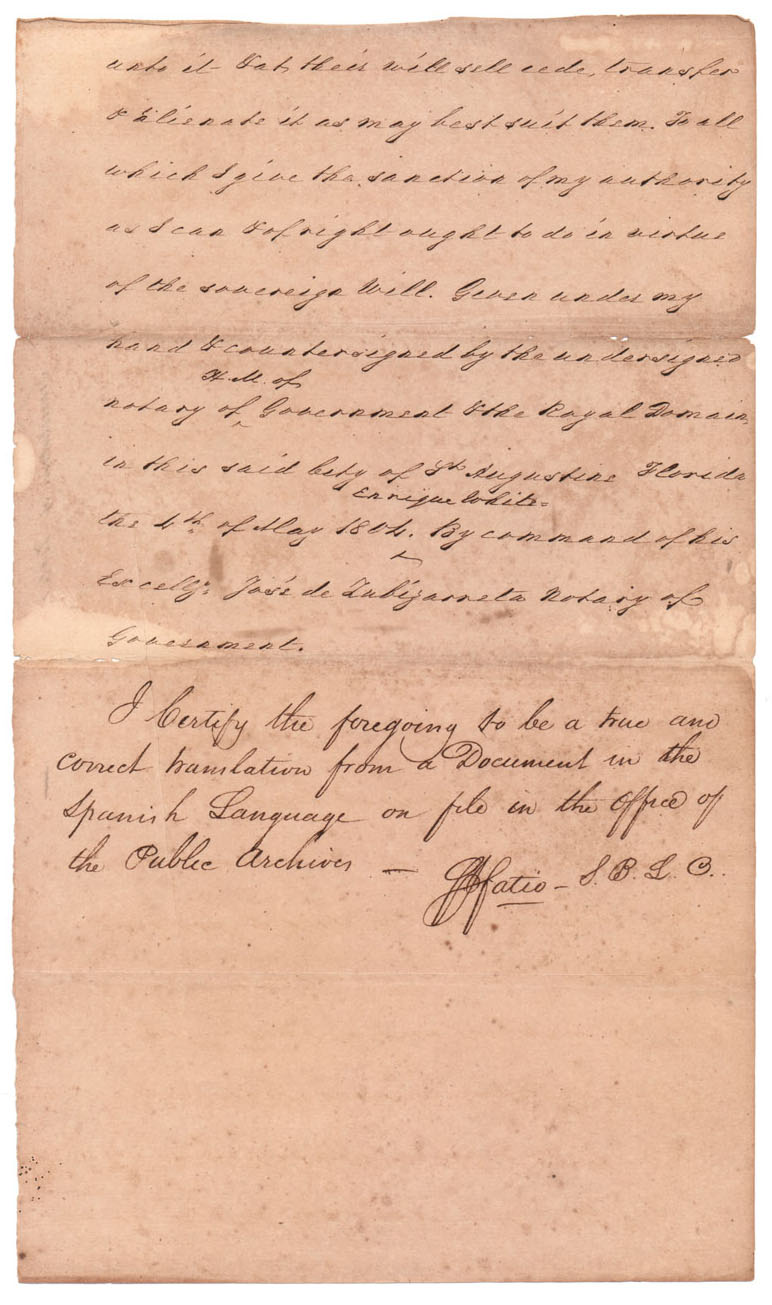 unto it & at their will sell cede, transfer
& Alienate it as may best suit them. To all
which I give the sanction of my authority
as I can & of right ought to do in virtue
of the sovereign Will. Given under my
hand & countersigned by the undersigned
H. M. of
notary of ‸ Government & the Royal Domain,
in this said City of St Augustine Florida
Enrique White =
the 4th of May 1804. ‸ By command of his
Excelly: José de Zubizarreta Notary of
Government.
I Certify the foregoing to be a true and
correct translation from a Document in the
Spanish Language on file in the Office of
the Public Archives — Fatio — S. B. L. C.